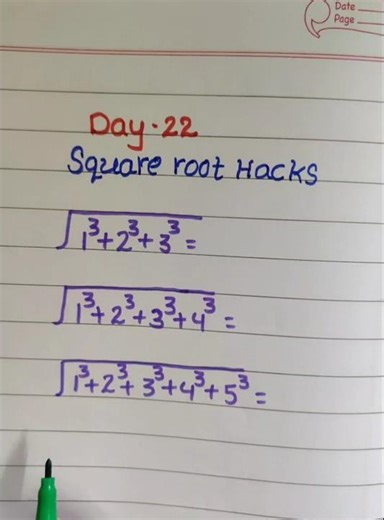 Date
Page
Day·22
Square root Hacks
√1³+2³+3³ =
√1³+2³+3³+4³ =
√1³+2³+3³+4³+5³ =